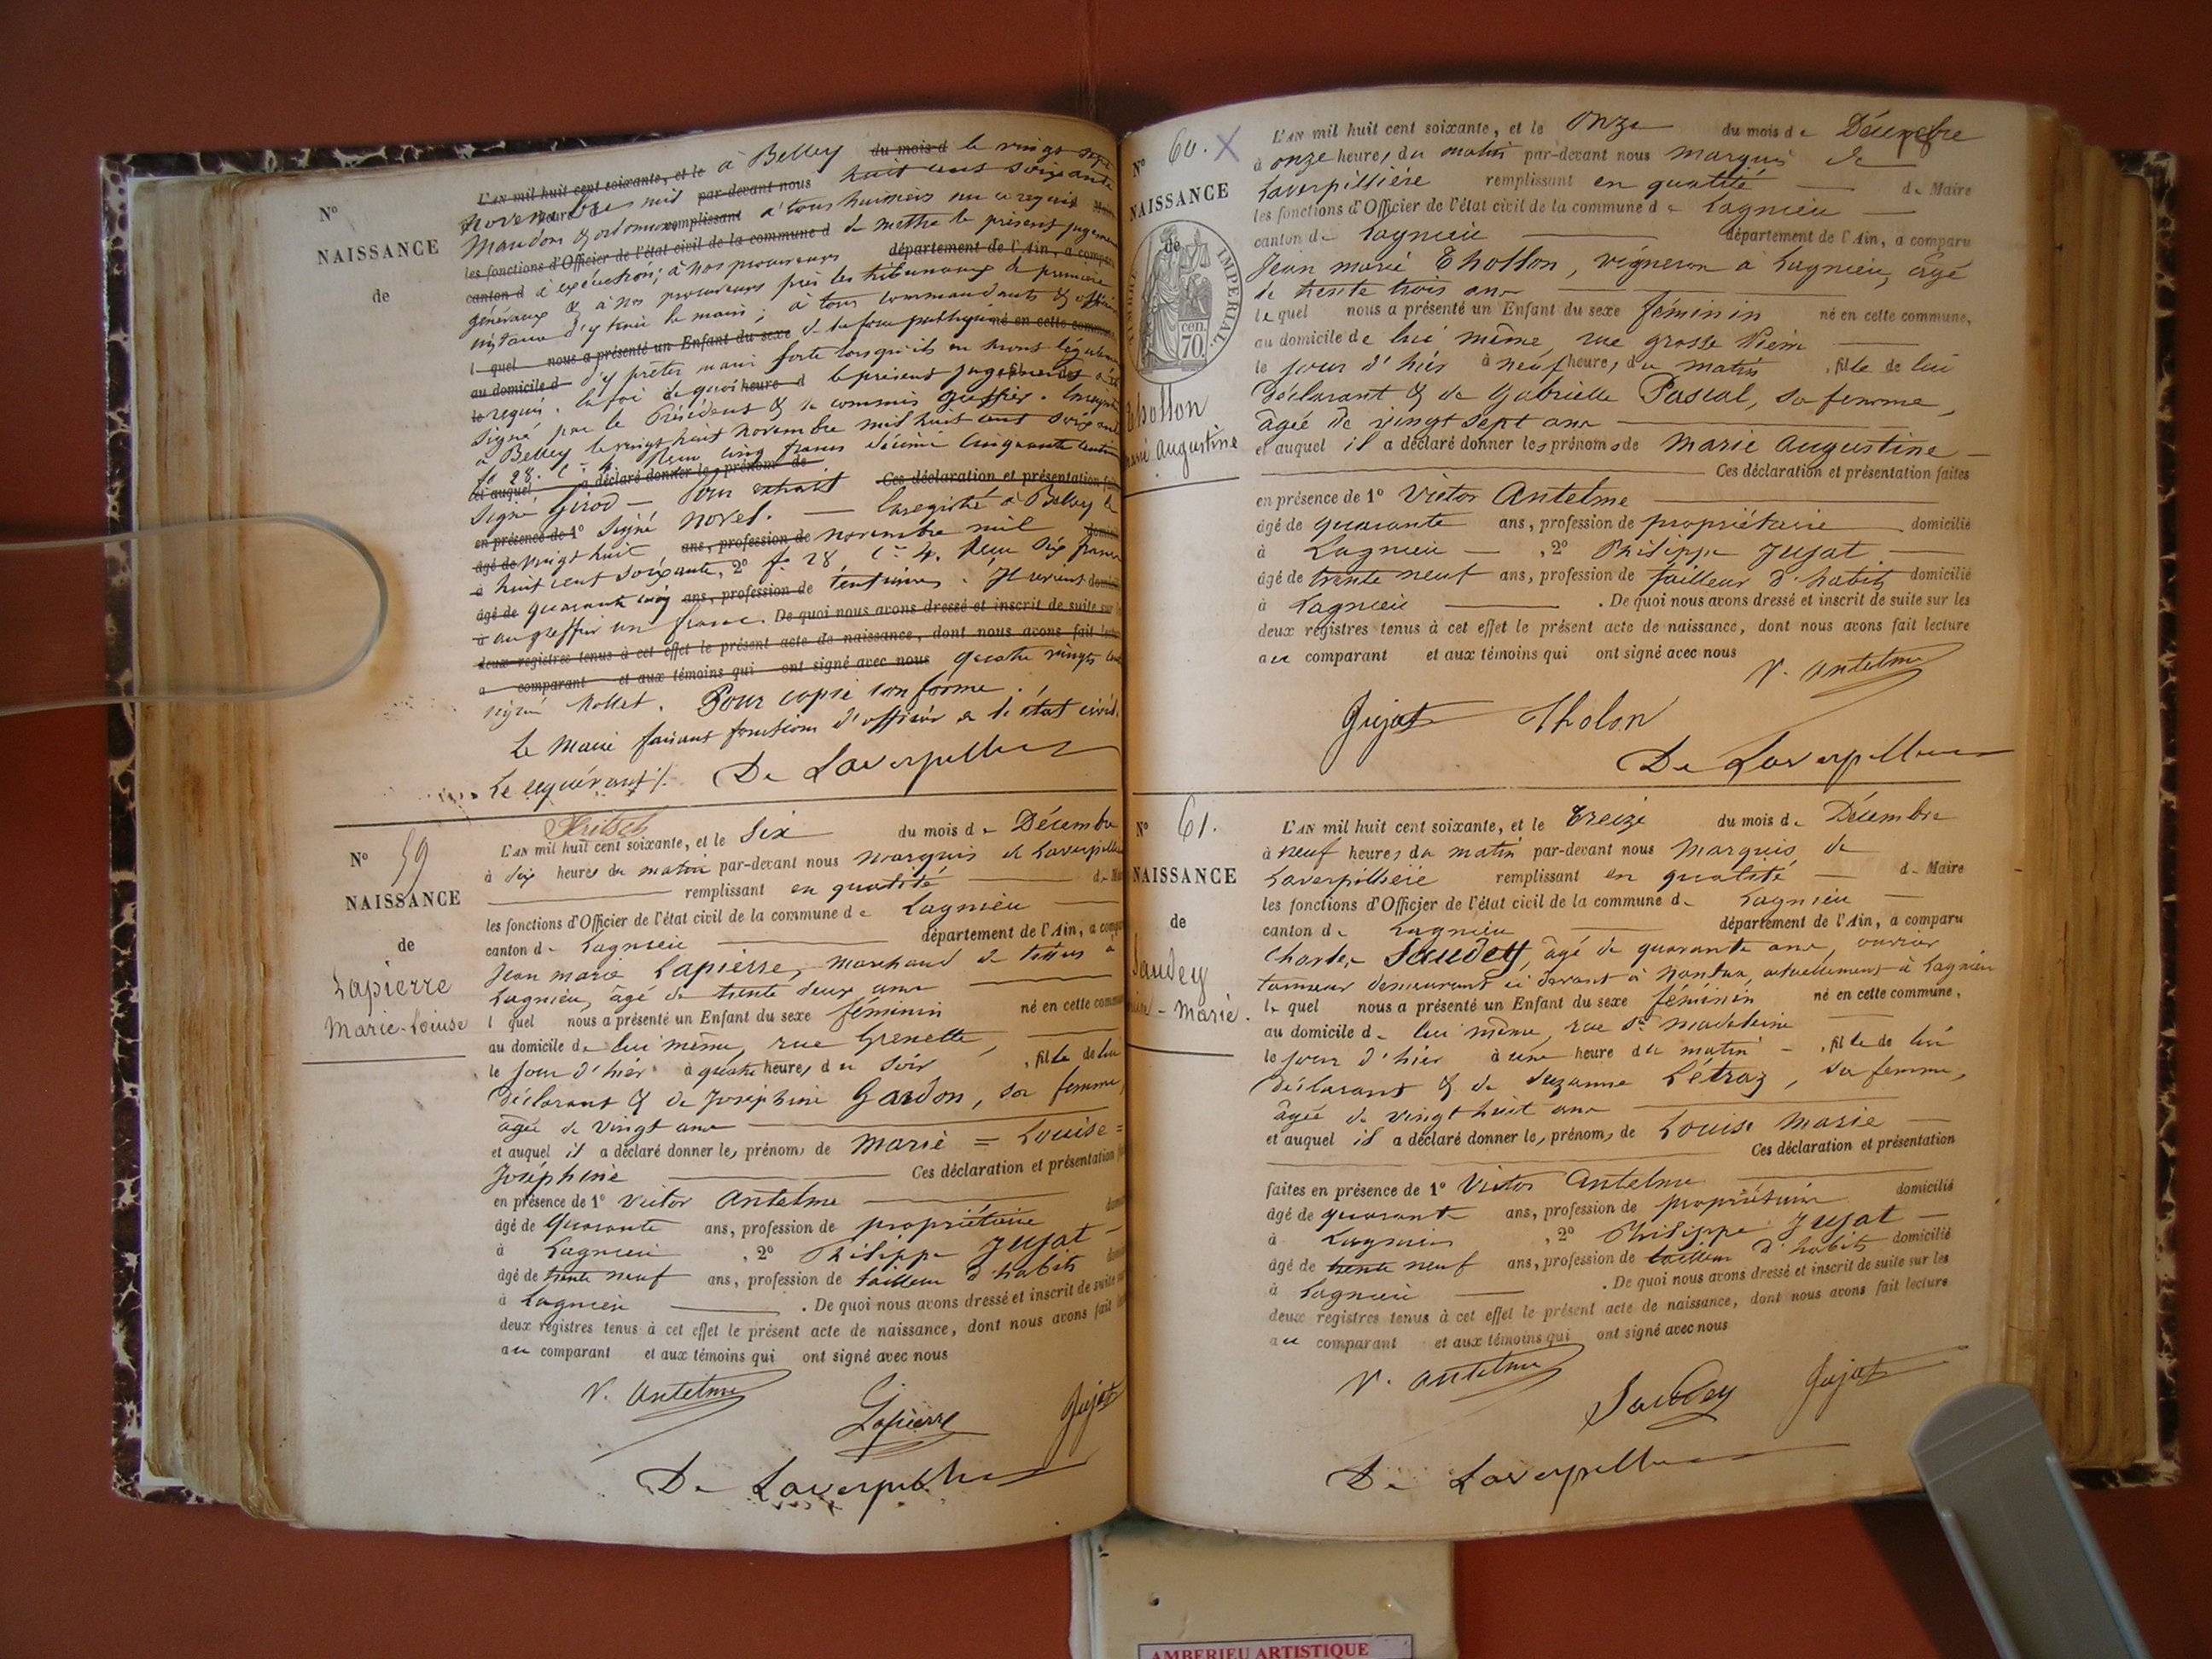 N°
NAISSANCE
de
L'AN mil huit cent soixante, et le à Belley du mois d le vingt sept
novembre mil par-devant nous huit cent soixante
Mandons & ordonnons remplissant à tous huissiers sur ce requis
les fonctions d'Officier de l'état civil de la commune d de mettre le présent jugement
canton d à exécution; à nos procureurs département de l'Ain, a comparu
généraux & à nos procureurs près les tribunaux de première
instance d'y tenir la main; à tous commandants & officiers
l quel nous a présenté un Enfant du sexe de la force publique né en cette commune,
au domicile d d'y prêter main forte lorsqu'ils en seront légalement
le requis. En foi de quoi heure d le présent jugement a été
signé par le Président & le commis greffier. Enregistré
à Belley le vingt huit novembre mil huit cent soixante
f° 28. c. 4. Reçu cinq francs décime cinquante centimes
et auquel a déclaré donner le prénom de
signé Girod — Pour extrait Ces déclaration et présentation
en présence de 1° signé Novel. — Enregistré à Belley le
âgé de vingt huit ans, profession de novembre mil
à huit cent soixante, 2° f° 28 c. 4. Reçu six francs
âgé de quarante cinq ans, profession de centimes. Il revient
à au greffier un franc. De quoi nous avons dressé et inscrit de suite sur
deux registres tenus à cet effet le présent acte de naissance, dont nous avons fait
a comparant et aux témoins qui ont signé avec nous quatre vingts
signé Mollet. Pour copie conforme.
Le Maire faisant fonctions d'officier de l'état civil.
Le requérant De Laverpilliere
N° 59
NAISSANCE
de
Lapierre
Marie-Louise
L'AN mil huit cent soixante, et le Six du mois de Décembre
à dix heures du matin par-devant nous Marquis de Laverpilliere
remplissant en qualité de Maire
les fonctions d'Officier de l'état civil de la commune de Lagnieu
canton de Lagnieu département de l'Ain, a comparu
Jean marie Lapierre, marchand de tissus à
Lagnieu, âgé de trente deux ans
l quel nous a présenté un Enfant du sexe féminin né en cette commune
au domicile de lui même, rue Grenette,
le jour d'hier à quatre heures du soir, fille de lui
déclarant & de Joséphine Gardon, sa femme,
âgée de vingt ans
et auquel il a déclaré donner les prénoms de Marie = Louise =
Joséphine Ces déclaration et présentation
en présence de 1° Victor Antelme
âgé de quarante ans, profession de propriétaire
à Lagnieu, 2° Philippe Jujat
âgé de trente neuf ans, profession de tailleur d'habits
à Lagnieu. De quoi nous avons dressé et inscrit de suite sur
deux registres tenus à cet effet le présent acte de naissance, dont nous avons fait
au comparant et aux témoins qui ont signé avec nous
V. Antelme
Lapierre
Jujat
De Laverpilliere
N° 60. X
NAISSANCE
de
TIMBRE IMPERIAL
70 cen.
Thollon
Marie Augustine
L'AN mil huit cent soixante, et le Onze du mois de Décembre
à onze heures du matin par-devant nous Marquis de
Laverpillière remplissant en qualité de Maire
les fonctions d'Officier de l'état civil de la commune de Lagnieu
canton de Lagnieu département de l'Ain, a comparu
Jean marie Thollon, vigneron à Lagnieu, âgé
de trente trois ans
lequel nous a présenté un Enfant du sexe féminin né en cette commune,
au domicile de lui même, rue grosse
le jour d'hier à neuf heures du matin, fille de lui
déclarant & de Gabrielle Pascal, sa femme,
âgée de vingt sept ans
et auquel il a déclaré donner les prénoms de Marie Augustine
Ces déclaration et présentation faites
en présence de 1° Victor Antelme
âgé de quarante ans, profession de propriétaire domicilié
à Lagnieu, 2° Philippe Jujat
âgé de trente neuf ans, profession de tailleur d'habits domicilié
à Lagnieu. De quoi nous avons dressé et inscrit de suite sur les
deux registres tenus à cet effet le présent acte de naissance, dont nous avons fait lecture
au comparant et aux témoins qui ont signé avec nous
V. Antelme
Jujat Tholon
De Laverpilliere
N° 61.
NAISSANCE
de
Saudey
Louise - Marie.
L'AN mil huit cent soixante, et le Treize du mois de Décembre
à neuf heures du matin par-devant nous Marquis de
Laverpillière remplissant en qualité de Maire
les fonctions d'Officier de l'état civil de la commune de Lagnieu
canton de Lagnieu département de l'Ain, a comparu
Charles Saudey, âgé de quarante ans, ouvrier
tanneur demeurant ci devant à Nantua, actuellement à Lagnieu
lequel nous a présenté un Enfant du sexe féminin né en cette commune,
au domicile de lui même, rue Ste Madeleine
le jour d'hier à une heure du matin, fille de lui
déclarant & de Suzanne Létraz, sa femme,
âgée de vingt huit ans
et auquel il a déclaré donner les prénoms de Louise Marie
Ces déclaration et présentation
faites en présence de 1° Victor Antelme
âgé de quarante ans, profession de propriétaire domicilié
à Lagnieu, 2° Philippe Jujat
âgé de trente neuf ans, profession de tailleur d'habits domicilié
à Lagnieu. De quoi nous avons dressé et inscrit de suite sur les
deux registres tenus à cet effet le présent acte de naissance, dont nous avons fait lecture
au comparant et aux témoins qui ont signé avec nous
V. Antelme
Saudey
Jujat
De Laverpilliere
AMBERIEU ARTISTIQUE